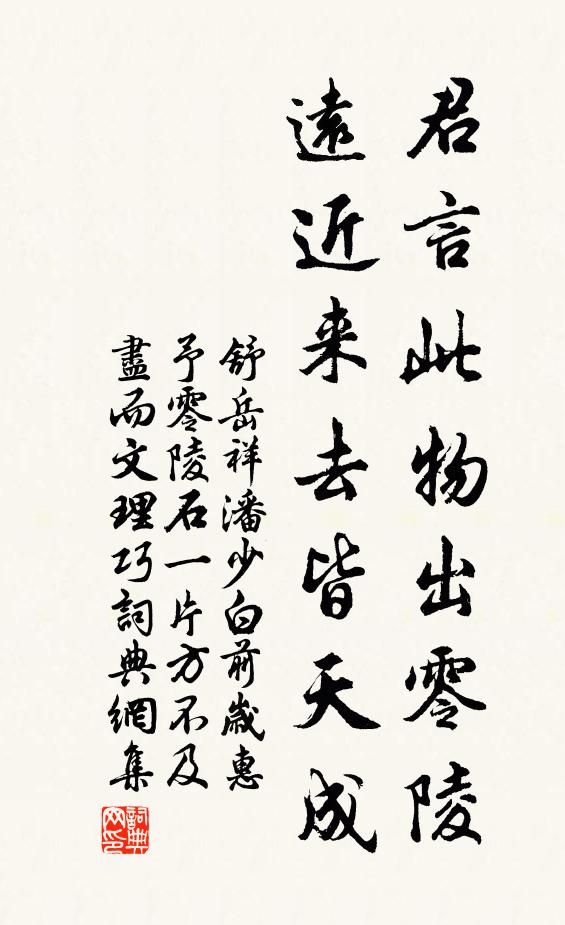 君言此物出零陵
遠近来去皆天成
舒岳祥潘少白前歲惠
予零陵石一片方不及
盡而文理巧詞典網集
詞典网印